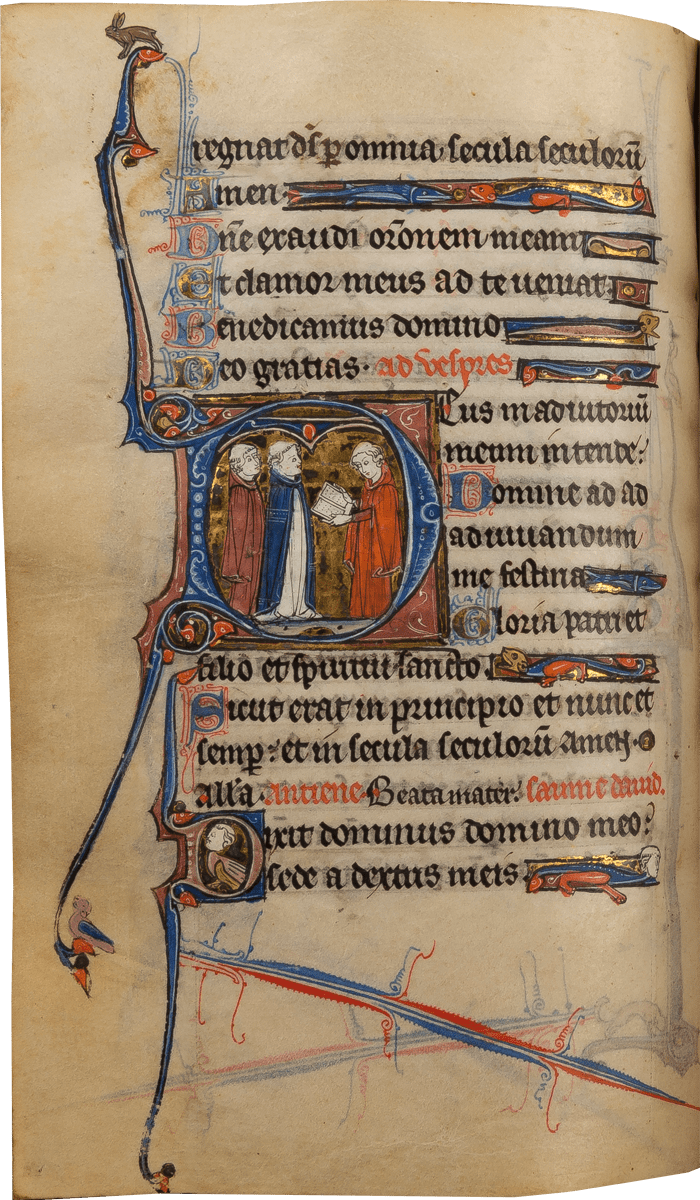 regnat dˢ p omnia secula seculorū
Amen
Dn̄e exaudi orōnem meam
Et clamor meus ad te ueniat
Benedicamus domino
Deo gratias. ad vespres
Deus in adiutoriū
meum intende:
Domine ad ad
adiuuandum
me festina
Gloria patri et
filio et spiritui sancto
Sicut erat in principio et nunc et
semp: et in secula seculorū Amen
All'a Antiene Beata mater. saume dauid.
Dixit dominus domino meo:
sede a dextris meis